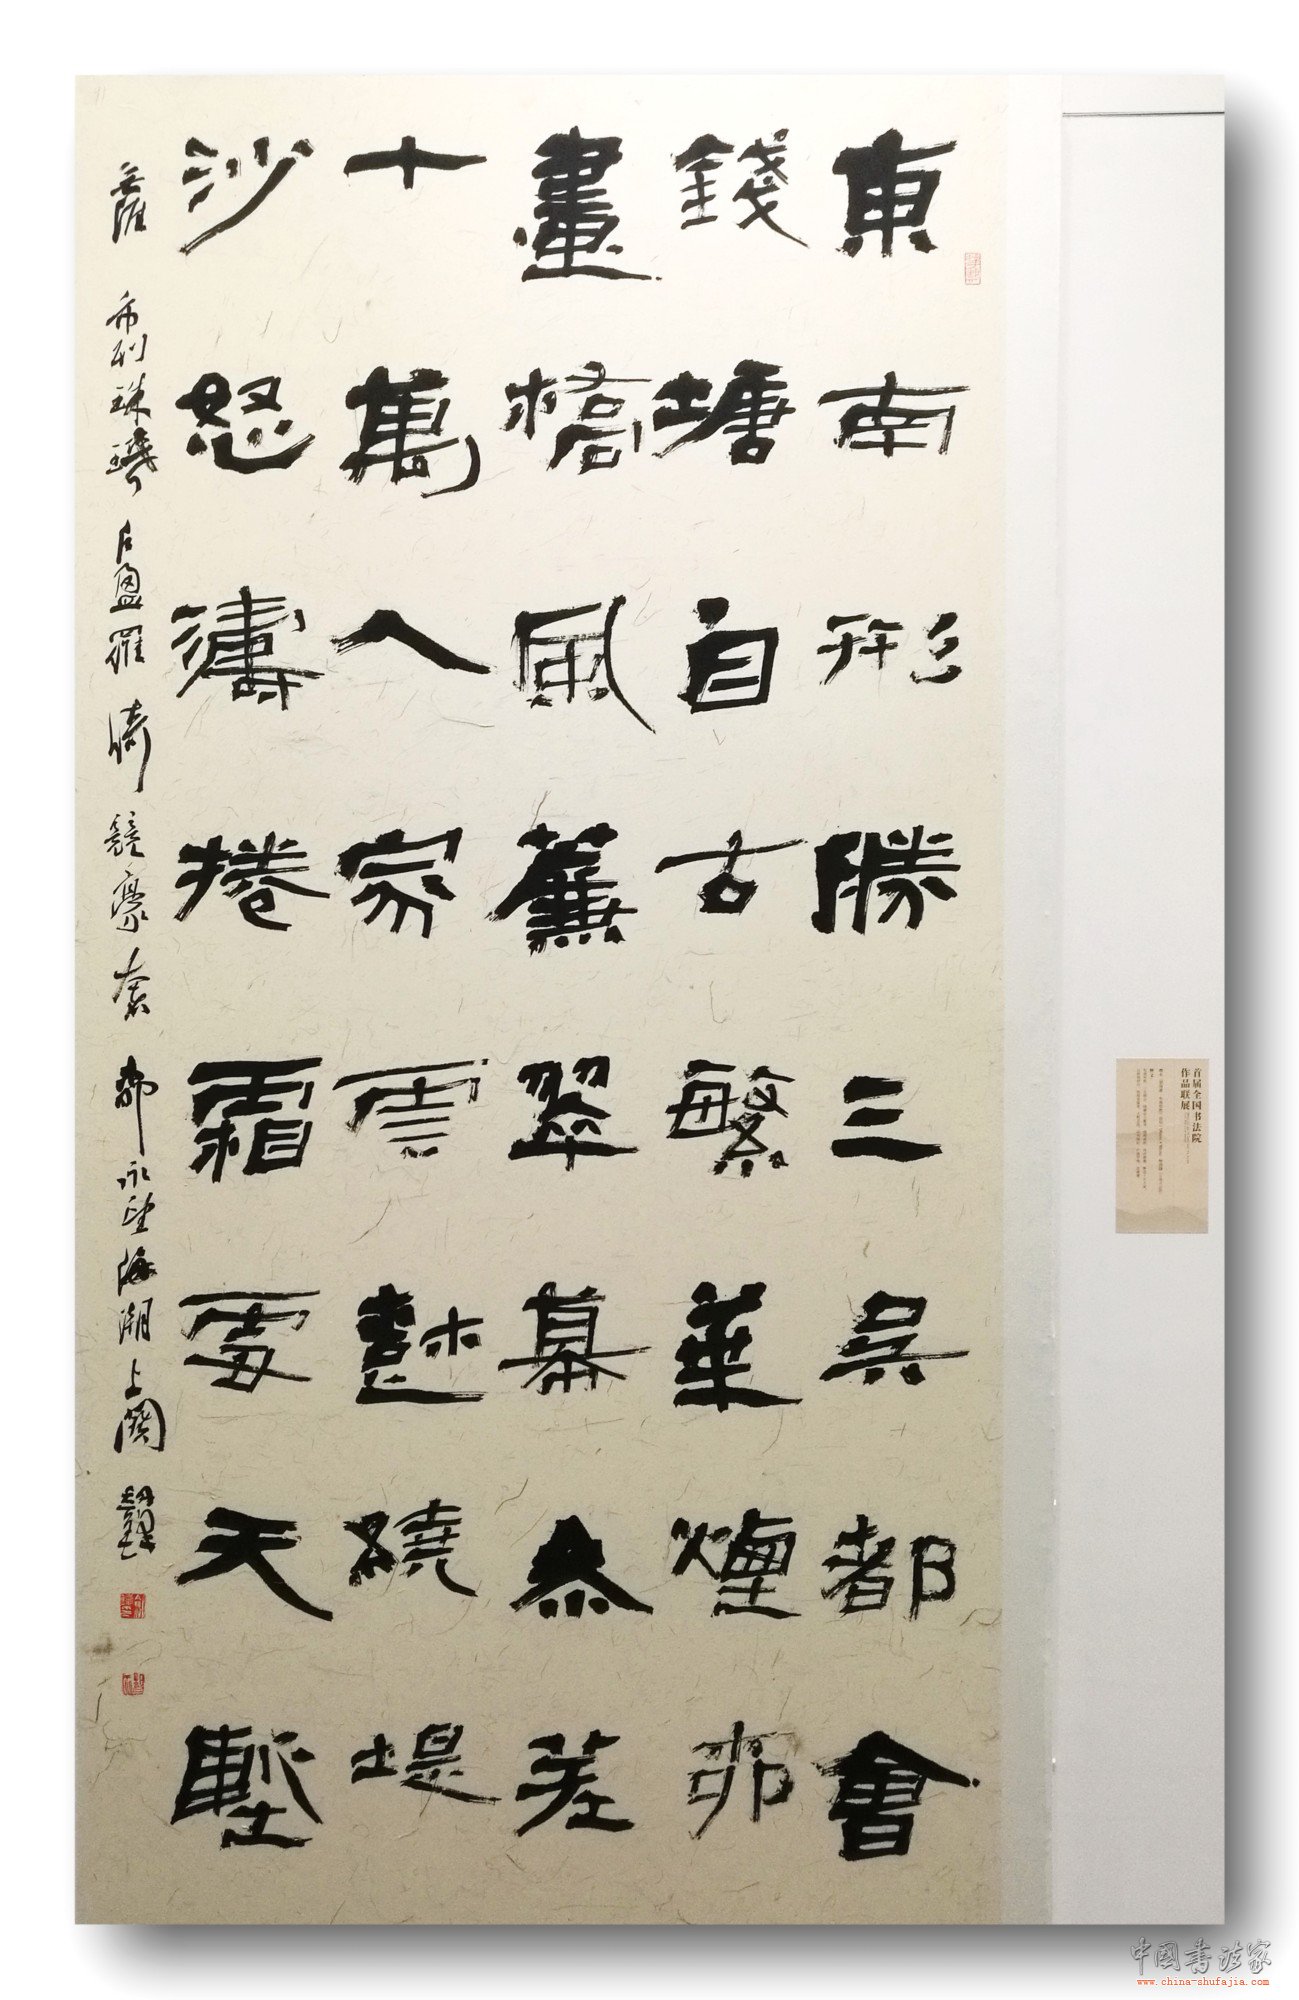 東南形勝三吳都會
錢塘自古繁華煙柳
畫橋風簾翠幕參差
十萬人家雲樹繞堤
沙怒濤捲霜雪天塹
無涯市列珠璣戶盈羅綺競豪奢柳永望海潮上闋
首届全国书法院
作品联展
中国书法家
www.china-shufajia.com